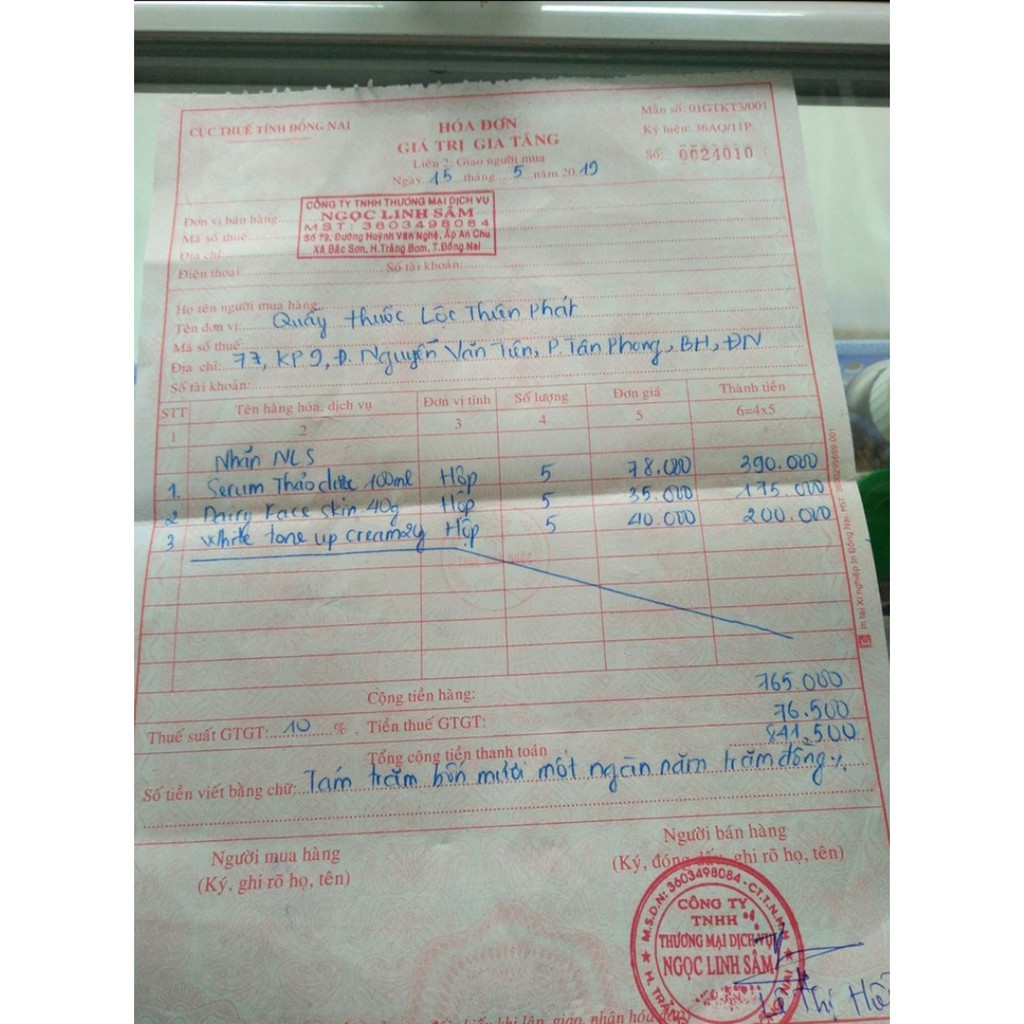 CỤC THUẾ TỈNH ĐỒNG NAI
HÓA ĐƠN
GIÁ TRỊ GIA TĂNG
Liên 2: Giao người mua
Ngày 15 tháng 5 năm 2019
Mẫu số: 01GTKT3/001
Ký hiệu: 36AQ/11P
Số: 0024010
Đơn vị bán hàng
CÔNG TY TNHH THƯƠNG MẠI DỊCH VỤ
NGỌC LINH SÂM
Mã số thuế
MST: 3603498084
Địa chỉ
Số 79, Đường Huỳnh Văn Nghệ, Ấp An Chu
Xã Bắc Sơn, H.Trảng Bom, T.Đồng Nai
Điện thoại: Số tài khoản:
Họ tên người mua hàng:
Tên đơn vị: Quầy thuốc Lộc Thiên Phát
Mã số thuế:
Địa chỉ: 77, KP 9, Đ. Nguyễn Văn Tiên, P. Tân Phong, BH, ĐN
Số tài khoản:
STT Tên hàng hóa, dịch vụ Đơn vị tính Số lượng Đơn giá Thành tiền
1 2 3 4 5 6=4x5
Nhãn NLS
1. Serum Thảo dược 100ml Hộp 5 78.000 390.000
2 Dairy Face Skin 40g Hộp 5 35.000 175.000
3 White tone up cream Hộp 5 40.000 200.000
Cộng tiền hàng: 765.000
Thuế suất GTGT: 10 %, Tiền thuế GTGT: 76.500
Tổng cộng tiền thanh toán 841.500
Số tiền viết bằng chữ: Tám trăm bốn mươi một ngàn năm trăm đồng
Người mua hàng
(Ký, ghi rõ họ, tên)
Người bán hàng
(Ký, đóng dấu, ghi rõ họ, tên)
M.S.D.N: 3603498084 - C.T.T.N.H.H
CÔNG TY
TNHH
THƯƠNG MẠI DỊCH VỤ
NGỌC LINH SÂM
Lê Thị
khi lập, giao, nhận hóa
In tại Xí nghiệp In Đồng Nai